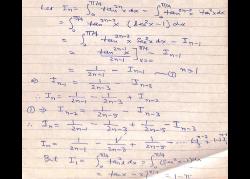 Let Iₙ = ∫₀^{π/4} tan²ⁿx dx = ∫₀^{π/4} tan²ⁿ⁻²x tan²x dx
= ∫₀^{π/4} tan²ⁿ⁻²x (sec²x-1) dx
= ∫₀^{π/4} tan²ⁿ⁻²x sec²x dx - Iₙ₋₁
= tan²ⁿ⁻¹x / 2n-1 ]^{π/4}_{x=0} - Iₙ₋₁
= 1/2n-1 - Iₙ₋₁ —① n≥1
⇒ Iₙ₋₁ = 1/2n-3 - Iₙ₋₂
∴ Iₙ = 1/2n-1 - 1/2n-3 + Iₙ₋₂
① ⇒ Iₙ₋₂ = 1/2n-5 - Iₙ₋₃
∴ Iₙ = 1/2n-1 - 1/2n-3 + 1/2n-5 - Iₙ₋₃
Iₙ = 1/2n-1 - 1/2n-3 + 1/2n-5 - ...
But I₁ = ∫₀^{π/4} tan²x dx = ∫₀^{π/4} (sec²x-1) dx
= tan x - x ]^{π/4} = 1-π